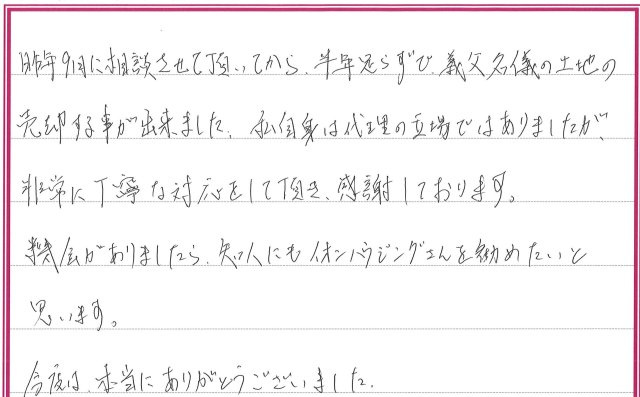 昨年9月に相談させて頂いてから、半年足らずで、義父名儀の土地の
売却する事が出来ました。私自身は代理の立場ではありましたが、
非常に丁寧な対応をして頂き、感謝しております。
機会がありましたら、知人にもイオンハウジングさんを勧めたいと
思います。
今度は、本当にありがとうございました。